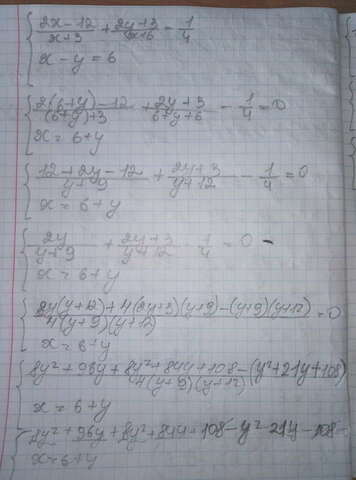 { (2x-12)/(x+3) + (2y+3)/(x+6) = 1/4
x - y = 6
{ (2(6+y)-12)/((6+y)+3) + (2y+3)/(6+y+6) - 1/4 = 0
x = 6+y
{ (12+2y-12)/(y+9) + (2y+3)/(y+12) - 1/4 = 0
x = 6+y
{ 2y/(y+9) + (2y+3)/(y+12) - 1/4 = 0
x = 6+y
{ (8y(y+12)+4(2y+3)(y+9)-(y+9)(y+12))/(4(y+9)(y+12)) = 0
x = 6+y
{ (8y²+96y+8y²+84y+108-(y²+21y+108))/(4(y+9)(y+12))
x = 6+y
{ 8y²+96y+8y²+84y+108-y²-21y-108-
x=6+y